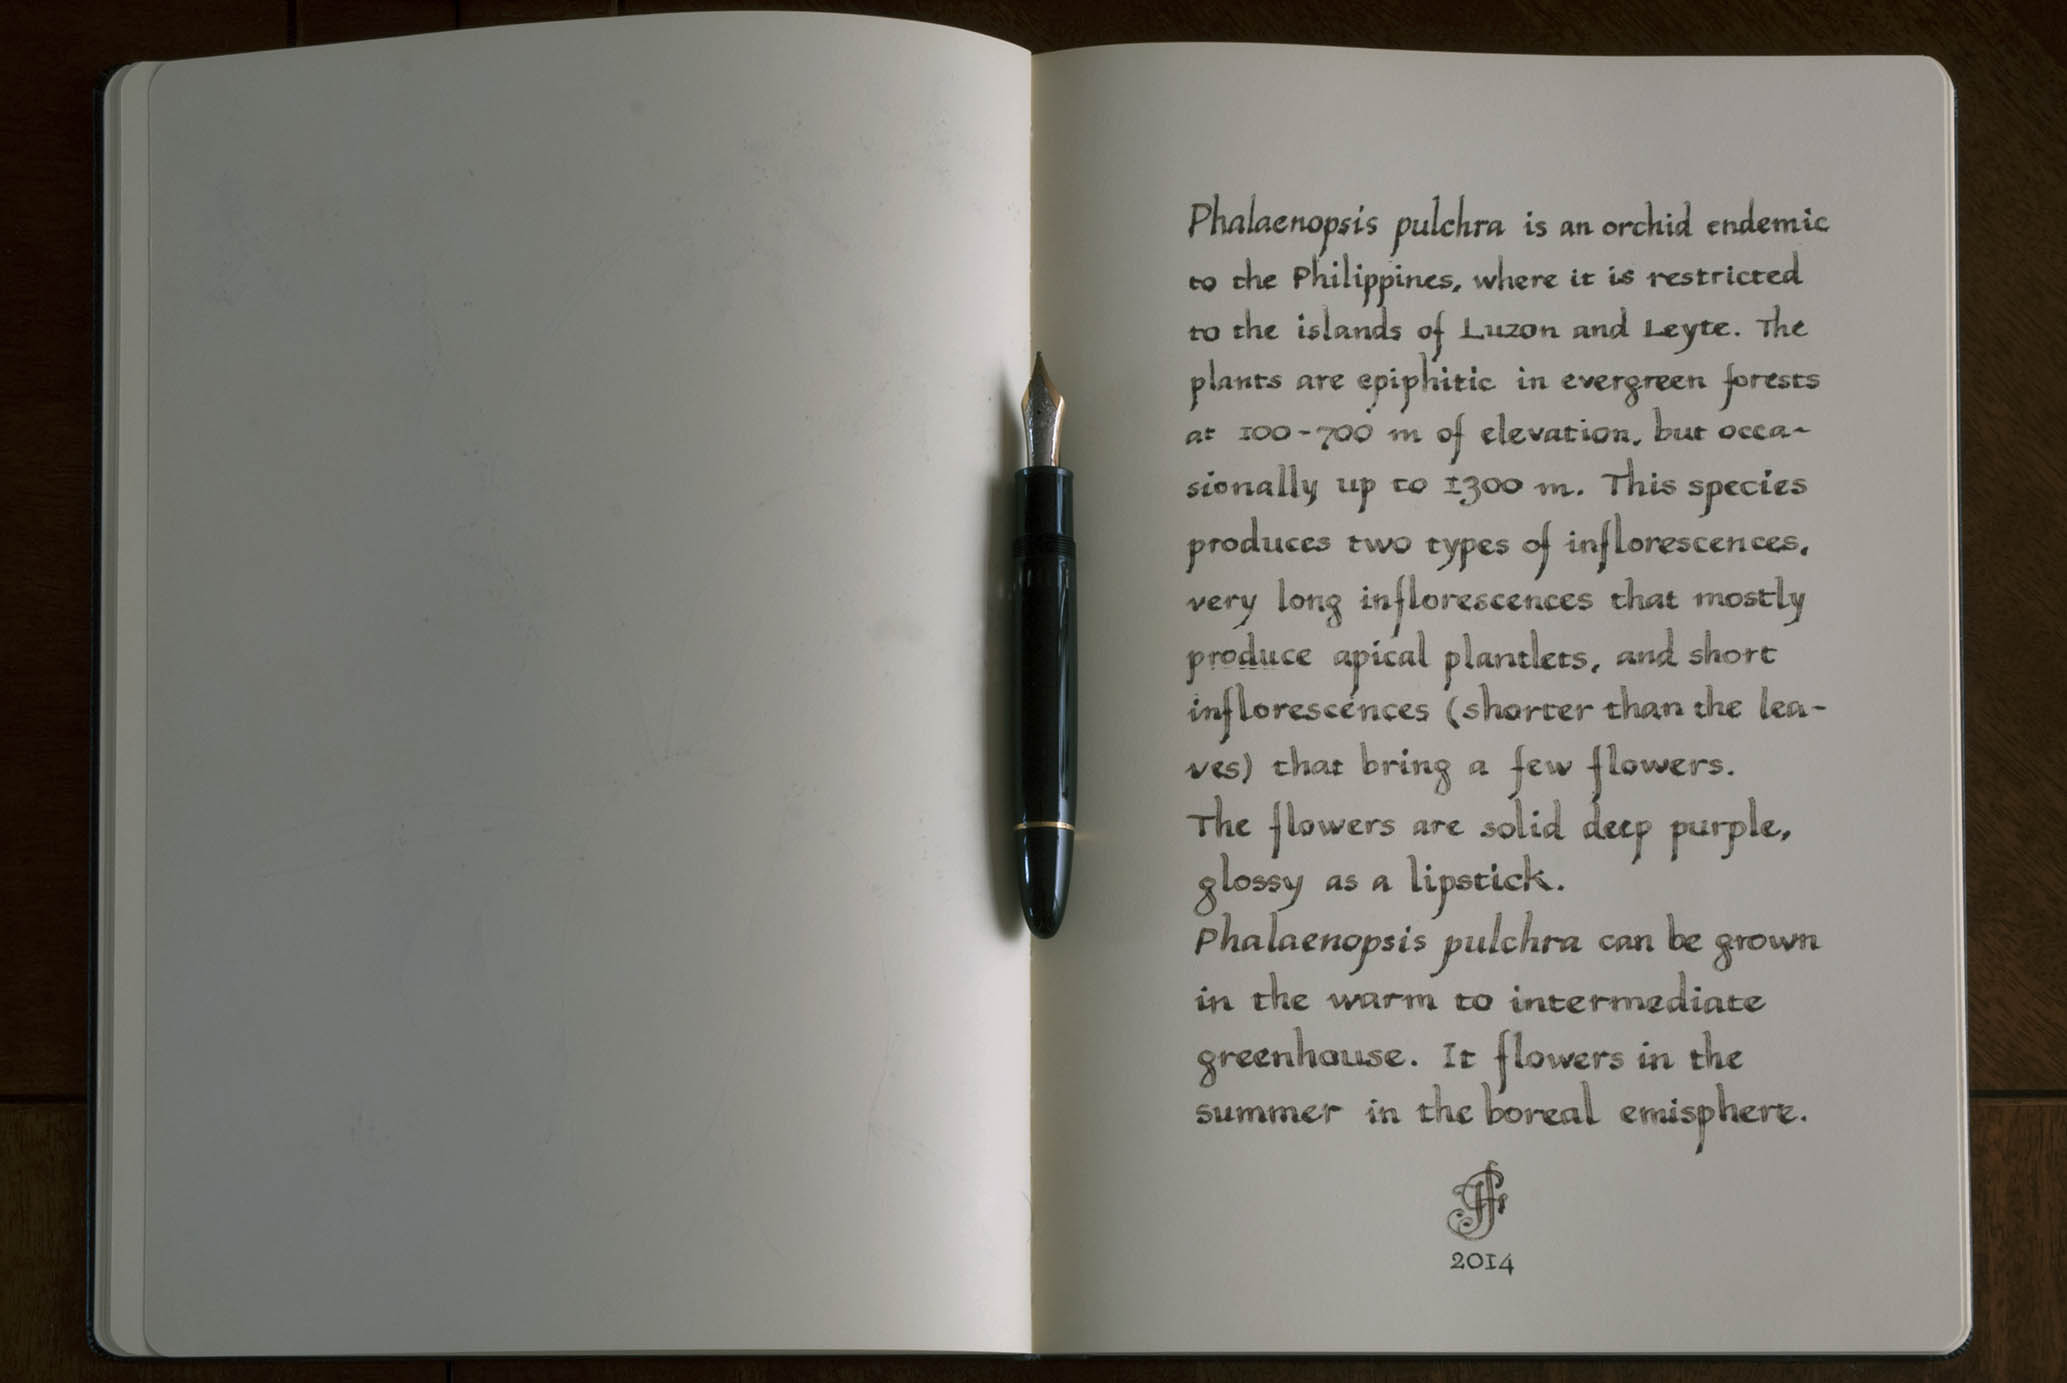 Phalaenopsis pulchra is an orchid endemic
to the Philippines, where it is restricted
to the islands of Luzon and Leyte. The
plants are epiphitic in evergreen forests
at 100-700 m of elevation, but occa-
sionally up to 1300 m. This species
produces two types of inflorescences,
very long inflorescences that mostly
produce apical plantlets, and short
inflorescences (shorter than the lea-
ves) that bring a few flowers.
The flowers are solid deep purple,
glossy as a lipstick.
Phalaenopsis pulchra can be grown
in the warm to intermediate
greenhouse. It flowers in the
summer in the boreal emisphere.
2014